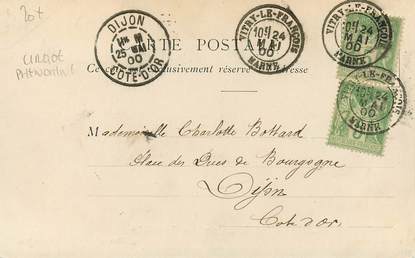 20+
DIJON
25 MAI
00
COTE-D'OR
VITRY-LE-FRANÇOIS
10H 24
MAI
00
MARNE
VITRY-LE-FRANÇOIS
10H 24
MAI
00
MARNE
CARTE POSTALE
Ce côté exclusivement réservé à l'adresse
VITRY-LE-FRANÇOIS
10H 24
MAI
00
MARNE
Mademoiselle Charlotte Bottard
Place des Ducs de Bourgogne
Dijon
Cote d'or.